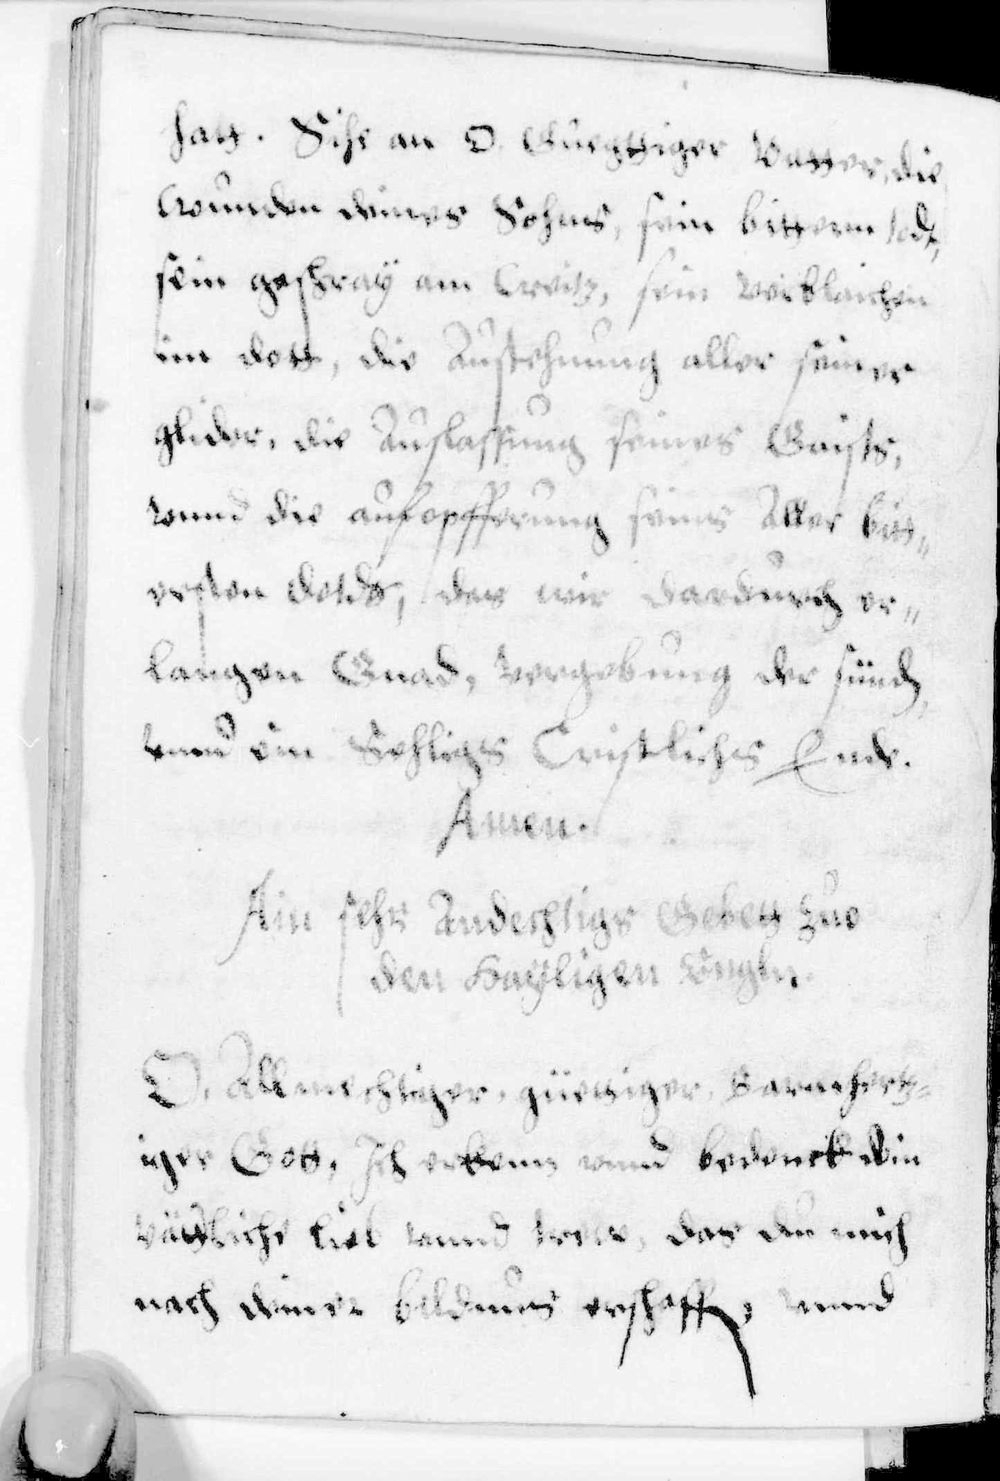 hatt. Sihe an O. Guettiger Vatter, die
Wunden deines Sohns, sein bittern todt,
sein geschray am Creitz, sein verblaichen
im dott, die Ausdehnung aller seiner
glider, die Auslassung seines Gaists,
vnnd die aufopfferung seines Aller bitt=
ersten dotds, das wir dardurch er=
langen Gnad, Vergebung der sünd,
vnnd ein Sehligs Cristlichs Ende.
Amen.
Ain sehr Andechtigs Gebett zue
den Hayligen Engln.
O. Allmechtiger, güettiger, Barmhertz=
iger Gott, Ich erkenn vnnd bedenck dein
vätterliche lieb vnnd trew, das du mich
nach deiner bildnus erschaffen, vnnd